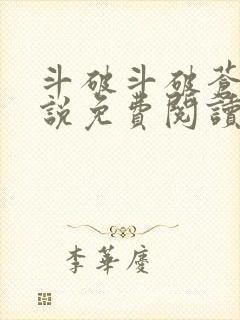 斗破斗破蒼
說免費閱讀
李華慶